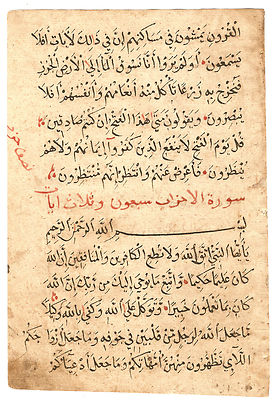 القرون يمشون في مساكنهم إن في ذلك لآيات أفلا
يسمعون أولم يروا أنا نسوق الماء إلى الأرض الجرز
فنخرج به زرعا تأكل منه أنعامهم وأنفسهم أفلا
يبصرون ويقولون متى هذا الفتح إن كنتم صادقين
قل يوم الفتح لا ينفع الذين كفروا إيمانهم ولا هم
ينظرون فأعرض عنهم وانتظر إنهم منتظرون
سورة الأحزاب سبعون وثلاث آيات
بسم الله الرحمن الرحيم
يا أيها النبي اتق الله ولا تطع الكافرين والمنافقين إن الله
كان عليما حكيما واتبع ما يوحى إليك من ربك إن الله
كان بما تعملون خبيرا وتوكل على الله وكفى بالله وكيلا
ما جعل الله لرجل من قلبين في جوفه وما جعل أزواجكم
اللائي تظهرون منهن أمهاتكم وما جعل أدعياءكم
نصف حزب